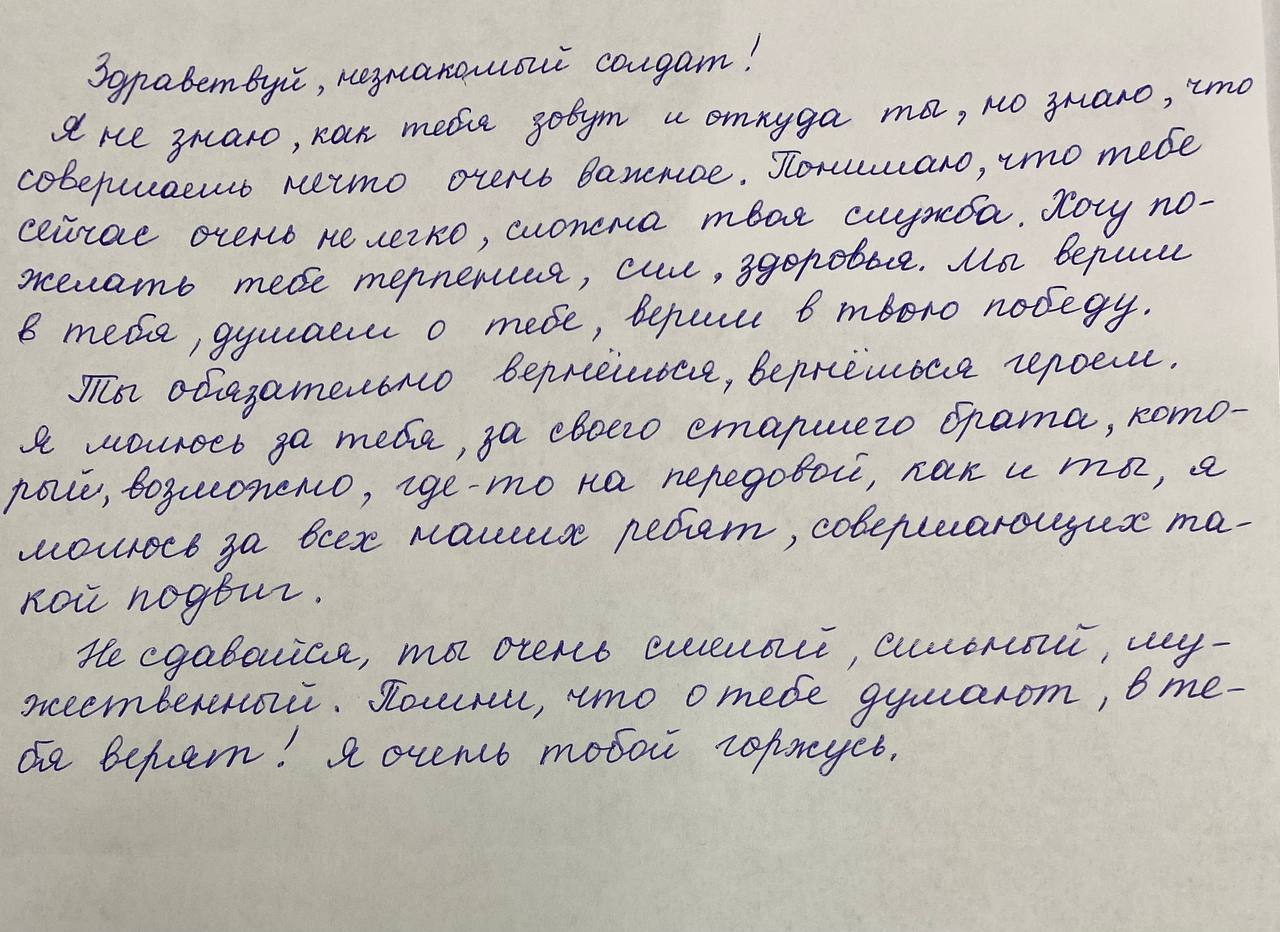 Здравствуй, незнакомый солдат!
Я не знаю, как тебя зовут и откуда ты, но знаю, что
совершаешь нечто очень важное. Понимаю, что тебе
сейчас очень нелегко, сложна твоя служба. Хочу по-
желать тебе терпения, сил, здоровья. Мы верим
в тебя, думаем о тебе, верим в твою победу.
Ты обязательно вернёшься, вернёшься героем.
Я молюсь за тебя, за своего старшего брата, кото-
рый, возможно, где-то на передовой, как и ты, я
молюсь за всех наших ребят, совершающих та-
кой подвиг.
Не сдавайся, ты очень смелый, сильный, му-
жественный. Помни, что о тебе думают, в те-
бя верят! Я очень тобой горжусь.